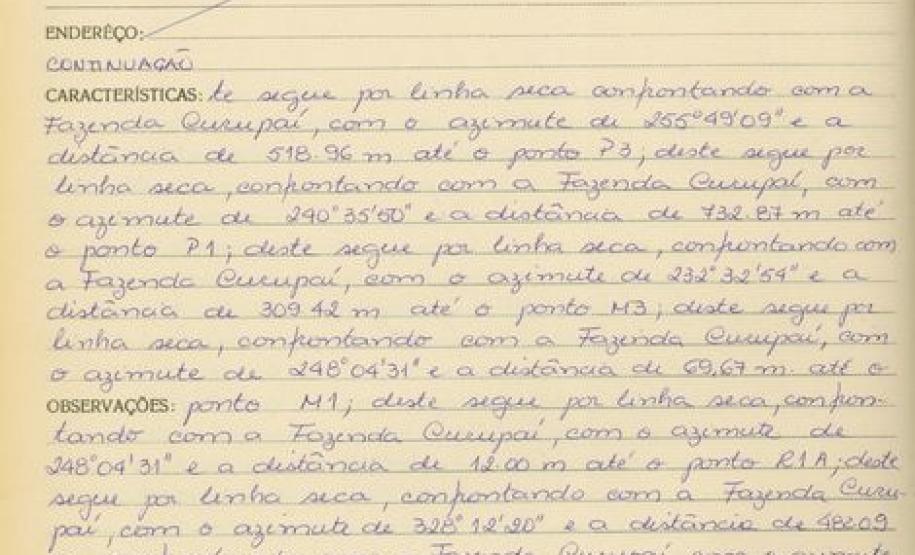 ENDERÊÇO:
CONTINUAÇÃO
CARACTERÍSTICAS: te segue por linha seca confrontando com a
Fazenda Curupaí, com o azimute de 255°49'09" e a
distância de 518.96 m até o ponto P3; deste segue por
linha seca, confrontando com a Fazenda Curupaí, com
o azimute de 240°35'50" e a distância de 732.87 m até
o ponto P1; deste segue por linha seca, confrontando com
a Fazenda Curupaí, com o azimute de 232°32'54" e a
distância de 309.42 m até o ponto M3; deste segue por
linha seca, confrontando com a Fazenda Curupaí, com
o azimute de 248°04'31" e a distância de 69,67 m. até o
OBSERVAÇÕES: ponto M1; deste segue por linha seca, confron-
tando com a Fazenda Curupaí, com o azimute de
248°04'31" e a distância de 12.00 m até o ponto R1A; deste
segue por linha seca, confrontando com a Fazenda Curu-
paí, com o azimute de 328°12'20" e a distância de 482.09
Fazenda Curupaí